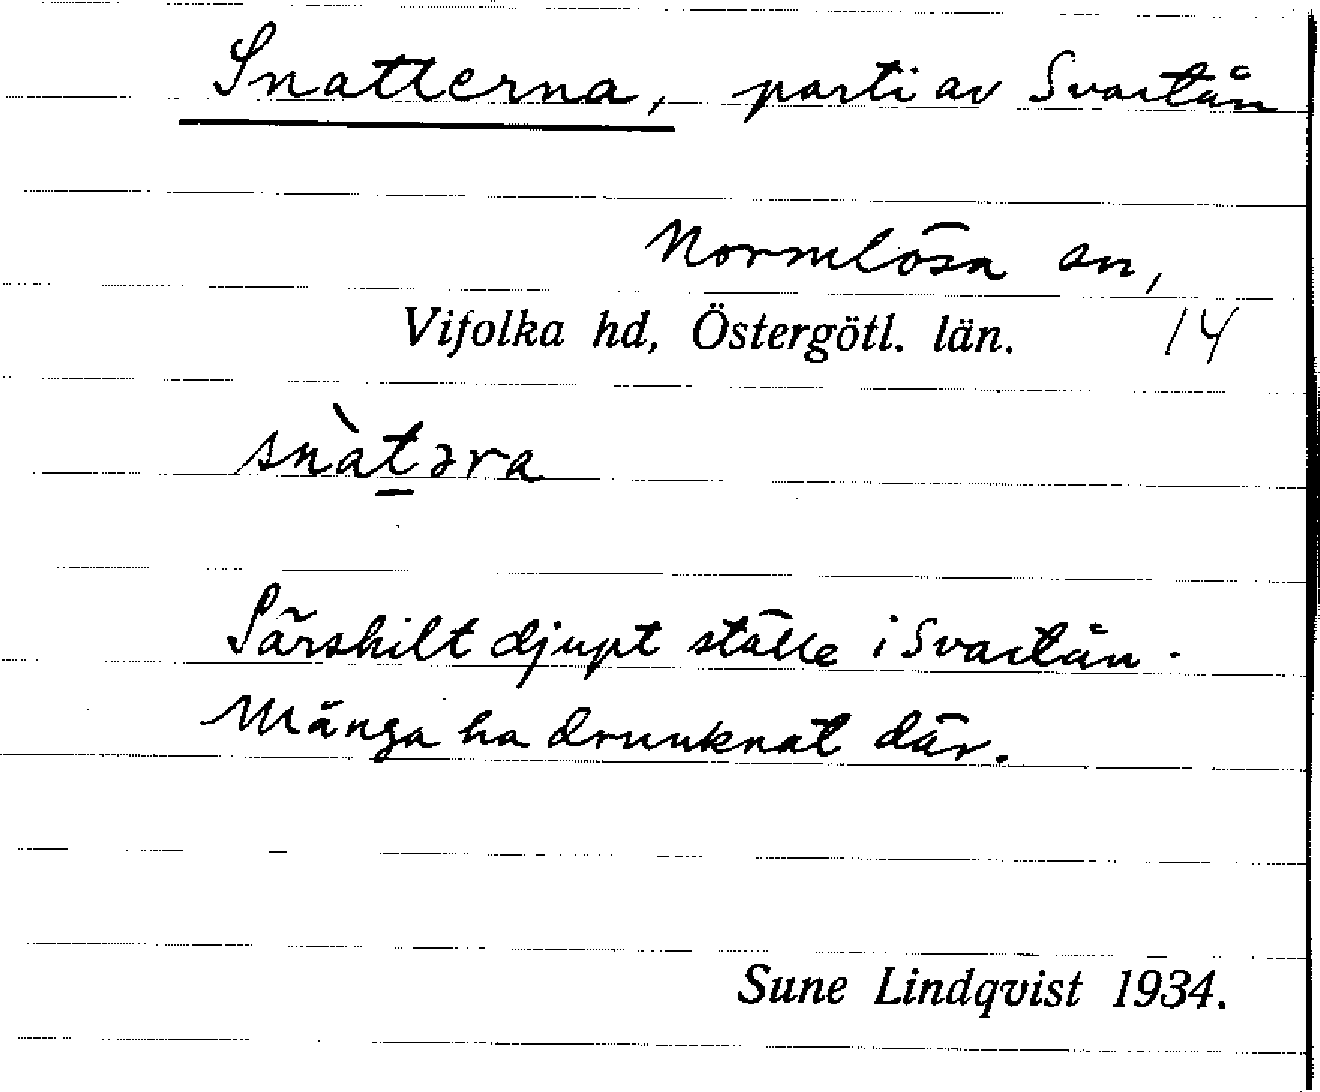 Snatterna, parti av Svartån
Normlösa sn,
Vifolka hd, Östergötl. län. 14
snàt̲əra
Särskilt djupt ställe i Svartån.
Många ha drunknat där.
Sune Lindqvist 1934.